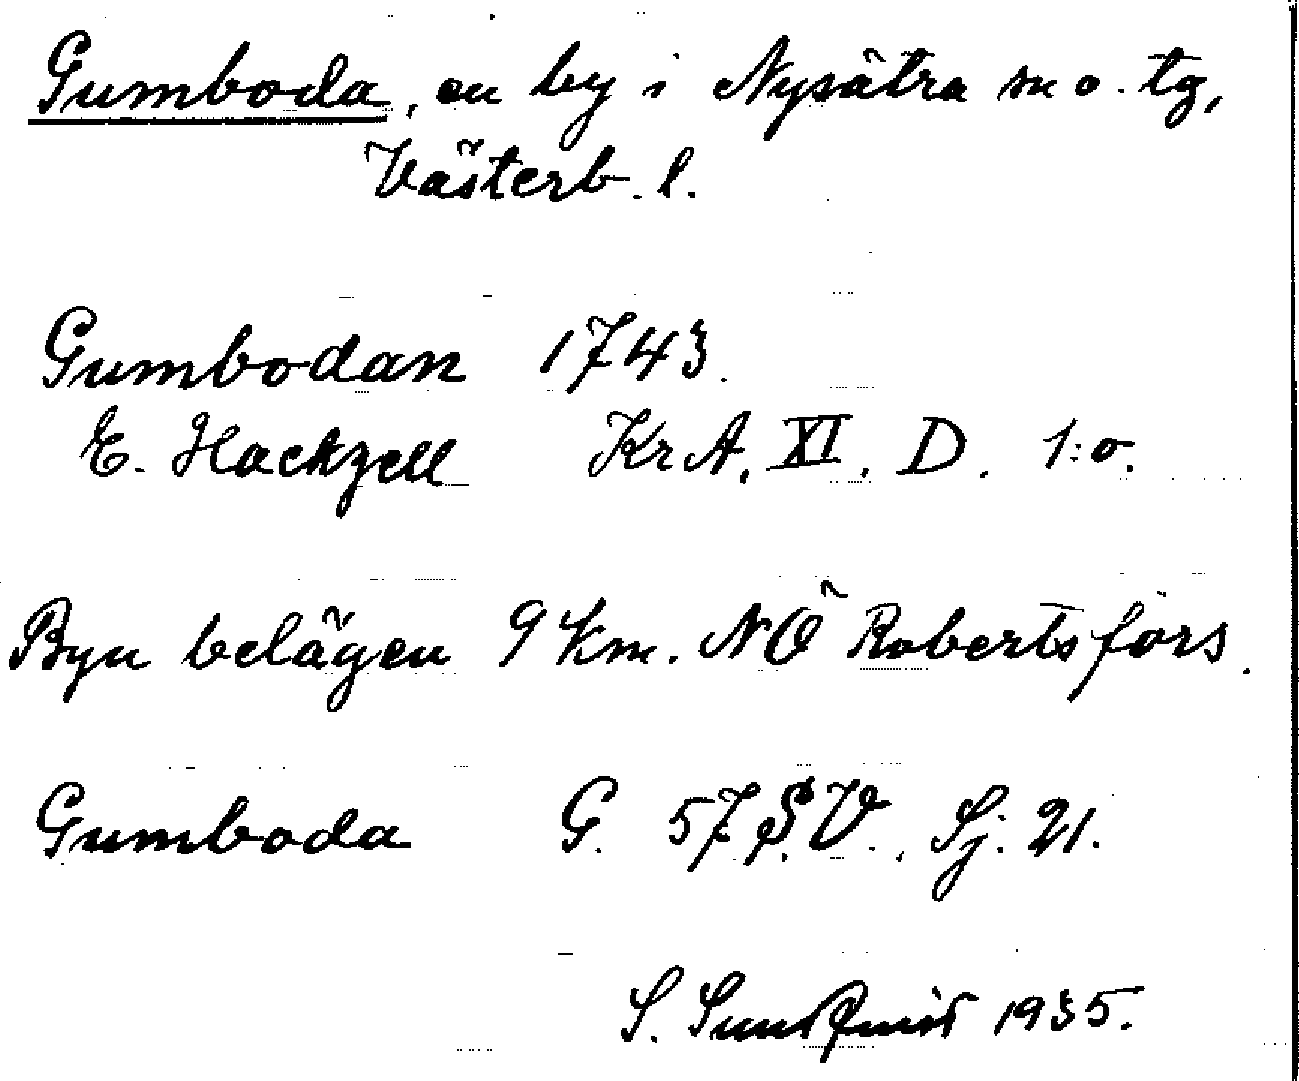 Gumboda, en by i Nysätra sn o. tg,
Västerb. l.
Gumbodan 1743.
E. Hackzell KrA. XI. D. 1:o.
Byn belägen 9 km. NÖ Robertsfors.
Gumboda G. 57 S.V., Sj. 21.
S. Sundquist 1935.